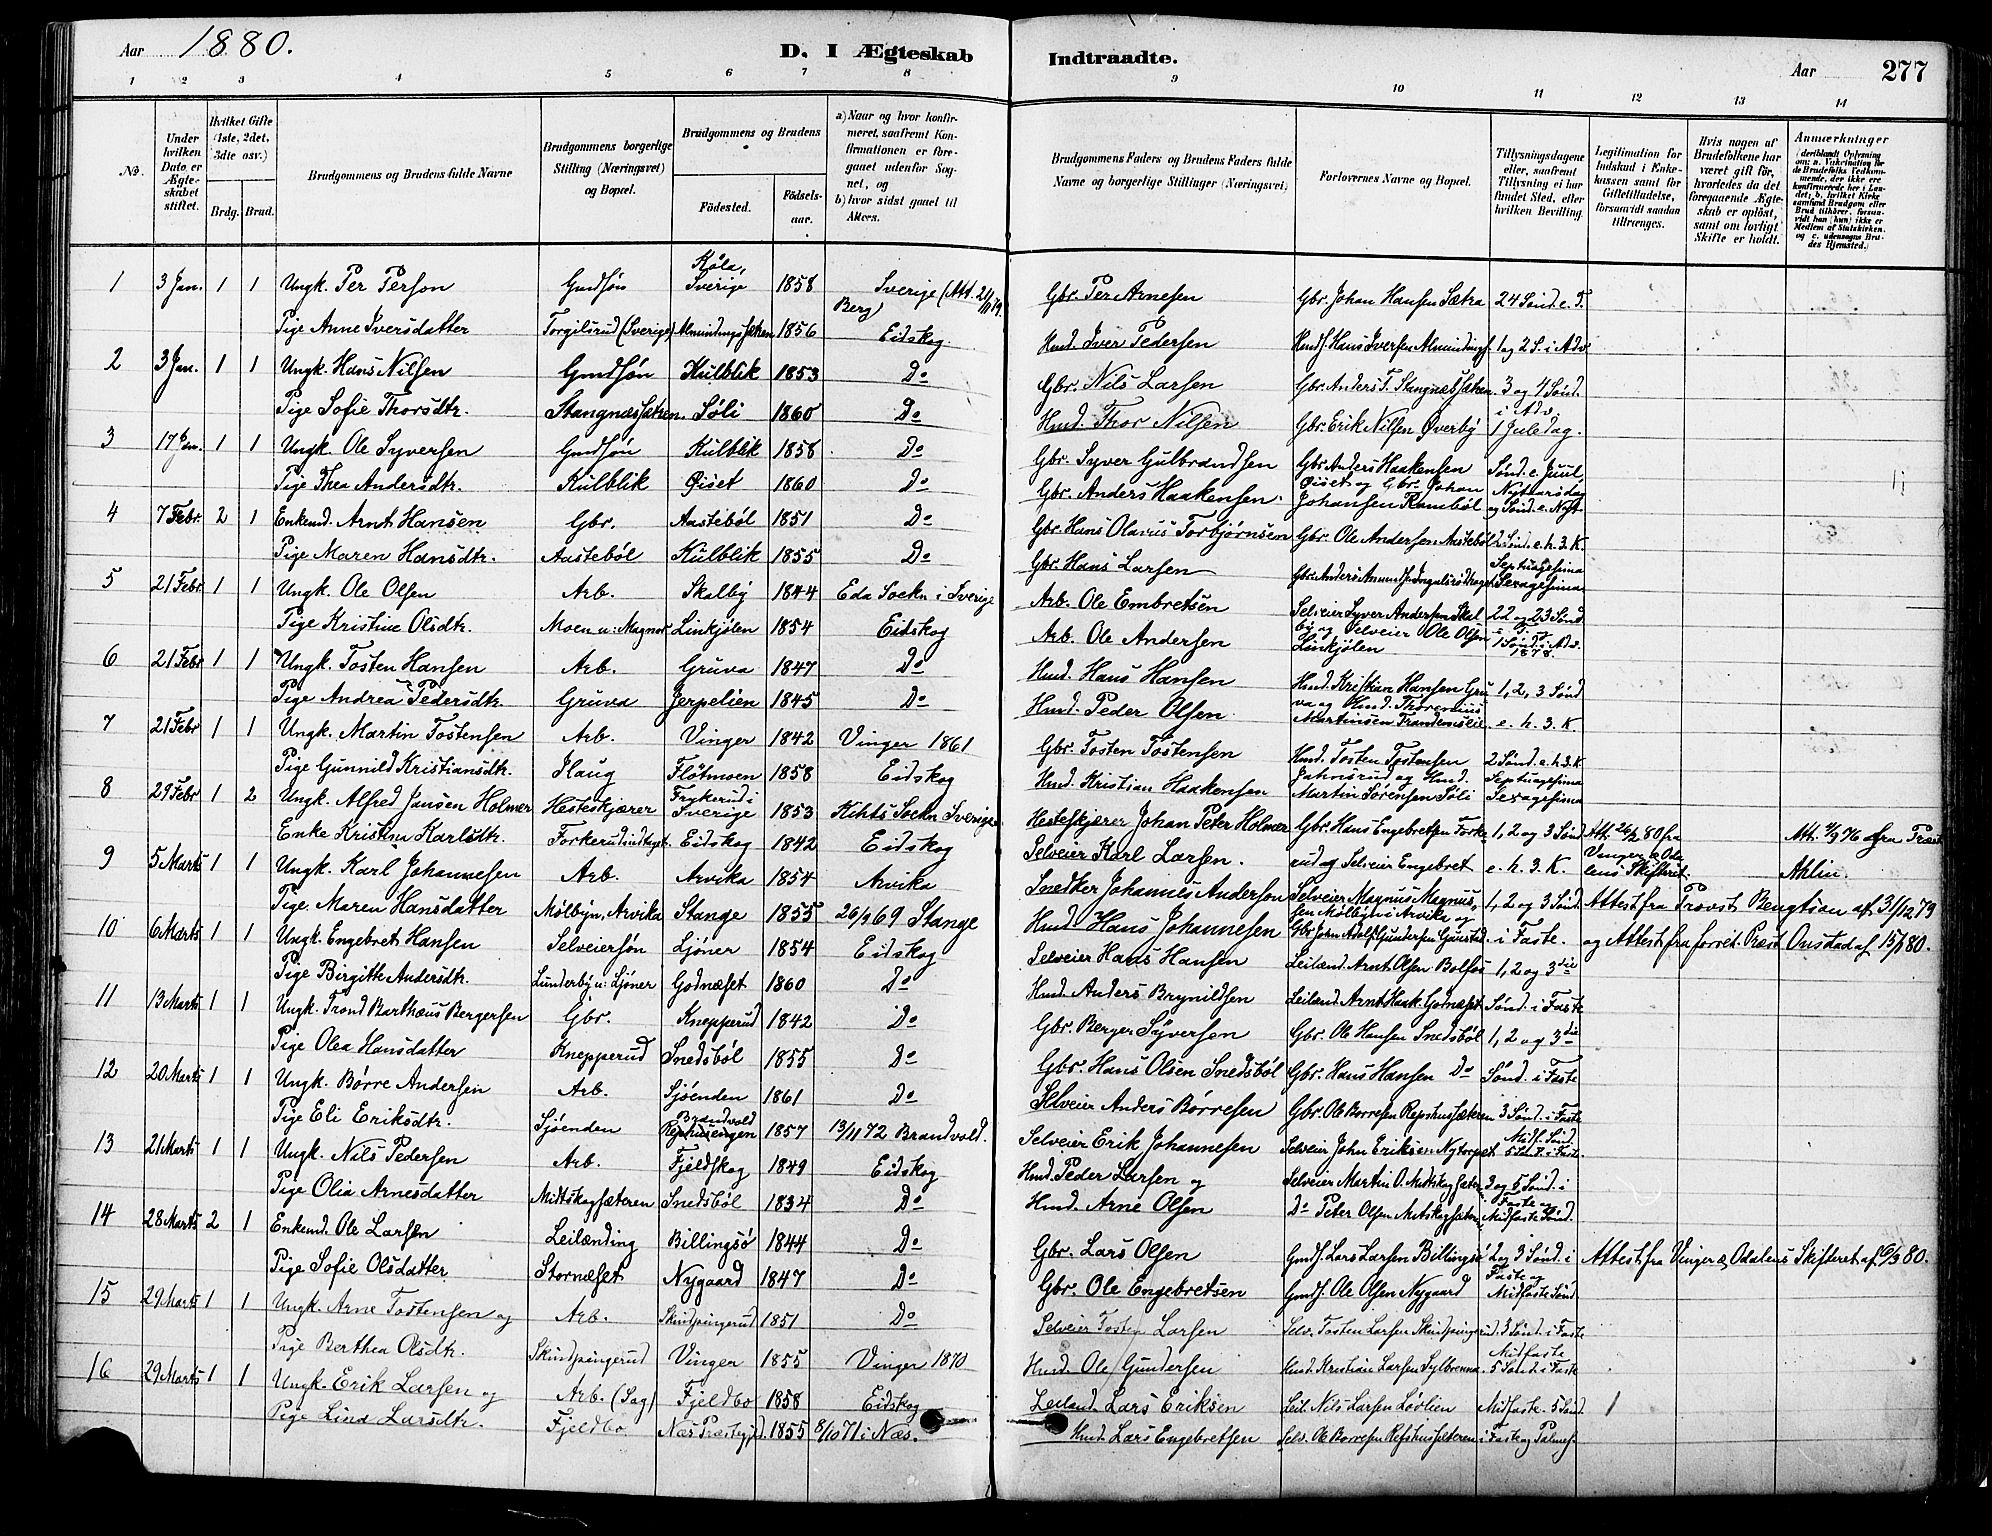 Aar 1880. D. I Ægteskab Indtraadte. Aar 277
1 2 3 4 5 6 7 8 9 10 11 12 13 14
No. Under hvilken Dato er Ægteskabet stiftet. Hvilket Gifte (1ste, 2det, 3die osv.) Brdg. Brud. Brudgommens og Brudens fulde Navne Brudgommens borgerlige Stilling (Næringsvei) og Bopæl. Brudgommens og Brudens Födested. Födselsaar. a) Naar og hvor konfirmeret, saafremt Konfirmationen er foregaaet udenfor Sognet, og b) hvor sidst gaaet til Alters. Brudgommens Faders og Brudens Faders fulde Navne og borgerlige Stillinger (Næringsvei) Forlovernes Navne og Bopæl. Tillysningsdagene eller, saafremt Tillysning ei har fundet Sted, efter hvilken Bevilling. Legitimation for Indskud i Enkekassen samt for Giftetilladelse, forsaavidt saadan tiltrænges. Hvis nogen af Brudefolkene har været gift för, hvorledes da det foregaaende Ægteskab er oplöst, samt om lovligt Skifte er holdt. Anmærkninger
1 3 Jan. 1 1 Ungk. Per Person Gmdsøn Køla, Sverige 1858 Sverige (Att. 2/11 79. Berg) Gbr. Per Arnesen Gbr. Johan Hansen Sætra 24 Sønd. e. T.
Pige Anne Iversdatter Torgilsrud (Sverige) Almindingssæteren 1856 Eidskog Hmd. Iver Pedersen Hmds. Hans Iversen Almindings. 1 og 2 S. i Adv.
2 3 Jan. 1 1 Ungk. Hans Nilsen Gmdsøn Kulblik 1853 Do Gbr. Nils Larsen Gbr. Anders T. Stangnæssæteren 3 og 4 Sønd. i Adv.
Pige Sofie Thorsdtr. Stangnæssæteren. Søli 1860 Do Hmd. Thor Nilsen Gbr. Erik Nilsen Øverby 1 Juledag.
3 17 Jan. 1 1 Ungk. Ole Syversen Gmdsøn Kulblik 1858 Do Gbr. Syver Gulbrandsen Gbr. Anders Haakensen Sønd. e. Juul,
Pige Thea Andersdtr. Kulblik Øiset 1860 Do Gbr. Anders Haakensen. Øiset og Gbr. Johan Johansen Rambøl Nytaarsdag og Sønd. e. Nyt.
4 7 Febr. 2 1 Enkemd. Arnt Hansen Gbr. Aastebøl 1851 Do Gbr. Hans Olavus Torbjørnsen Gbr. Ole Andersen Aastebøl 2 Sønd. e. h. 3. K.
Pige Maren Hansdtr. Aastebøl Kulblik 1855 Do Gbr. Hans Larsen Septuagesima Sexagesima
5 21 Febr. 1 1 Ungk. Ole Olsen Arb. Skalby 1844 Eda Sockn i Sverige Arb. Ole Embretsen Selveier Syver Andersen Skalby 22 og 23 Sønd. e. T.
Pige Kristine Olsdtr. Moen u: Magnor Linkjølen 1854 Eidskog Arb. Ole Andersen og Selveier Ole Olsen Linkjølen 1 Sønd. i Adv. 1878.
6 21 Febr. 1 1 Ungk. Tosten Hansen Arb. Gruva 1847 Do Hmd. Hans Hansen Hmd. Kristian Hansen Gruva 1, 2, 3 Sønd
Pige Andrea Pedersdtr. Gruva Jerpelien 1845 Do Hmd. Peder Olsen. og Hmd. Thorenius Martinsen e. h. 3. K.
7 21 Febr 1 1 Ungk. Martin Tostensen Arb. Vinger 1842 Vinger 1861 Gbr. Tosten Tostensen Hmd. Tosten Tostensen 2 Sønd. e. h. 3. K
Pige Gunnild Kristiansdtr. Haug Fløtmoen 1858 Eidskog Hmd. Kristian Haakensen Jahnsrud og Hmd. Martin Sørensen Søli Septuagesima Sexagesima
8 29 Febr 1 2 Ungk. Alfred Jansen Holmer Hesteskjærer Frykerud i Sverige 1853 Sockn Sverige Hesteskjærer Johan Peter Holmer Gbr. Hans Engebretsen Forke 1, 2 og 3 Sønd Att. 26/2 80 fra Att. 4/9 76 fra Præst
Enke Kristina Karlsdtr. Forkerud Eidskog 1842 Eidskog Selveier Karl Larsen. rud og Selveier Engebret e. h. 3. K. Vinger & Odalens Skifteret. Ahlin.
9 5 Marts 1 1 Ungk. Karl Johannesen Arb. Arvika 1854 Arvika Snedker Johannes Anderson Selveier Magnus Magnussen Mølbyn i Arvika og 1, 2 og 3 Sønd. Attest fra Provst Bengtson af 31/12 79
Pige Maren Hansdatter Mølbyn, Arvika Stange 1855 26/9 69 Stange Hmd. Hans Johannesen Gbr. John Adolf Gundersen Gaustad. i Faste. og Attest fra forret. Præst Onsdad af 15/1 80.
10 6 Marts 1 1 Ungk. Engebret Hansen Selveiersøn Ljøner 1854 Eidskog Selveier Hans Hansen Leilænd. Arnt Olsen Bolfos 1, 2 og 3die
Pige Birgitte Andersdtr. Lunderby u: Ljøner Godnæset 1860 Do Hmd. Anders Brynildsen Leilænd. Arnt Haak. Godnæset Sønd. i Faste
11 13 Marts 1 1 Ungk. Trond Barthæus Bergersen Gbr. Knepperud 1842 Do Gbr. Berger Syversen Gbr. Ole Hansen Snedsbøl 1, 2 og 3die
Pige Olea Hansdatter Knepperud Snedsbøl 1855 Do Gbr. Hans Olsen Snedsbøl Gbr. Hans Hansen Do Sønd. i Faste
12 20 Marts 1 1 Ungk. Børre Andersen Arb. Sjøenden 1861 Do Selveier Anders Børresen Gbr. Ole Børresen Repshussæteren 3 Sønd. i Faste
Pige Eli Eriksdtr. Sjøenden Brandvold 1857 13/11 72 Brandvold. Selveier Erik Johannesen Selveier John Eriksen Nytorpet Midf. Sønd. 5 Sønd. i Faste.
13 21 Marts 1 1 Ungk. Nils Pedersen Arb. Fjeldskog 1849 Eidskog Hmd. Peder Larsen og Selveier Martin O. Mitskogsæter. 3 og 5 Sønd. i
Pige Olia Arnesdatter Mittskogsæteren Snedsbøl 1834 Do Hmd. Arne Olsen Do Peter Olsen Mitskogsæter. Faste og Midfaste Sønd.
14 28 Marts 2 1 Enkemd. Ole Larsen Leilænding Billingsø 1844 Do Gbr. Lars Olsen Gmds. Lars Larsen Billingsø 2 og 3 Sønd. i Attest fra Vinger & Odalens Skifteret af 6/3 80.
Pige Sofie Olsdatter Stornæset Nygaard 1847 Do Gbr. Ole Engebretsen Gmds. Ole Olsen Nygaard Faste og Midfaste Sønd
15 29 Marts 1 1 Ungk. Arne Tostensen og Arb. Skindpungerud 1851 Do Selveier Tosten Larsen Selv. Tosten Larsen Skindpungerud. 3 Sønd. i Faste
Pige Berthea Olsdtr. Skindpungerud Vinger 1855 Vinger 1870 Hmd. Ole Gundersen Hmd. Kristian Larsen Midfaste 5 Sønd. i Faste
16 29 Marts 1 1 Ungk. Erik Larsen og Arb. (Sag) Fjeldbo 1858 Eidskog Leilænd. Lars Eriksen Leil. Nils Larsen Løvlien Midfaste. 5 Sønd.
Pige Lina Larsdtr. Fjeldbo Næs Præstegjd. 1855 8/10 71 i Næs. Hmd. Lars Engebretsen Selv. Ole Børresen Repshussæteren i Faste og Palmes.